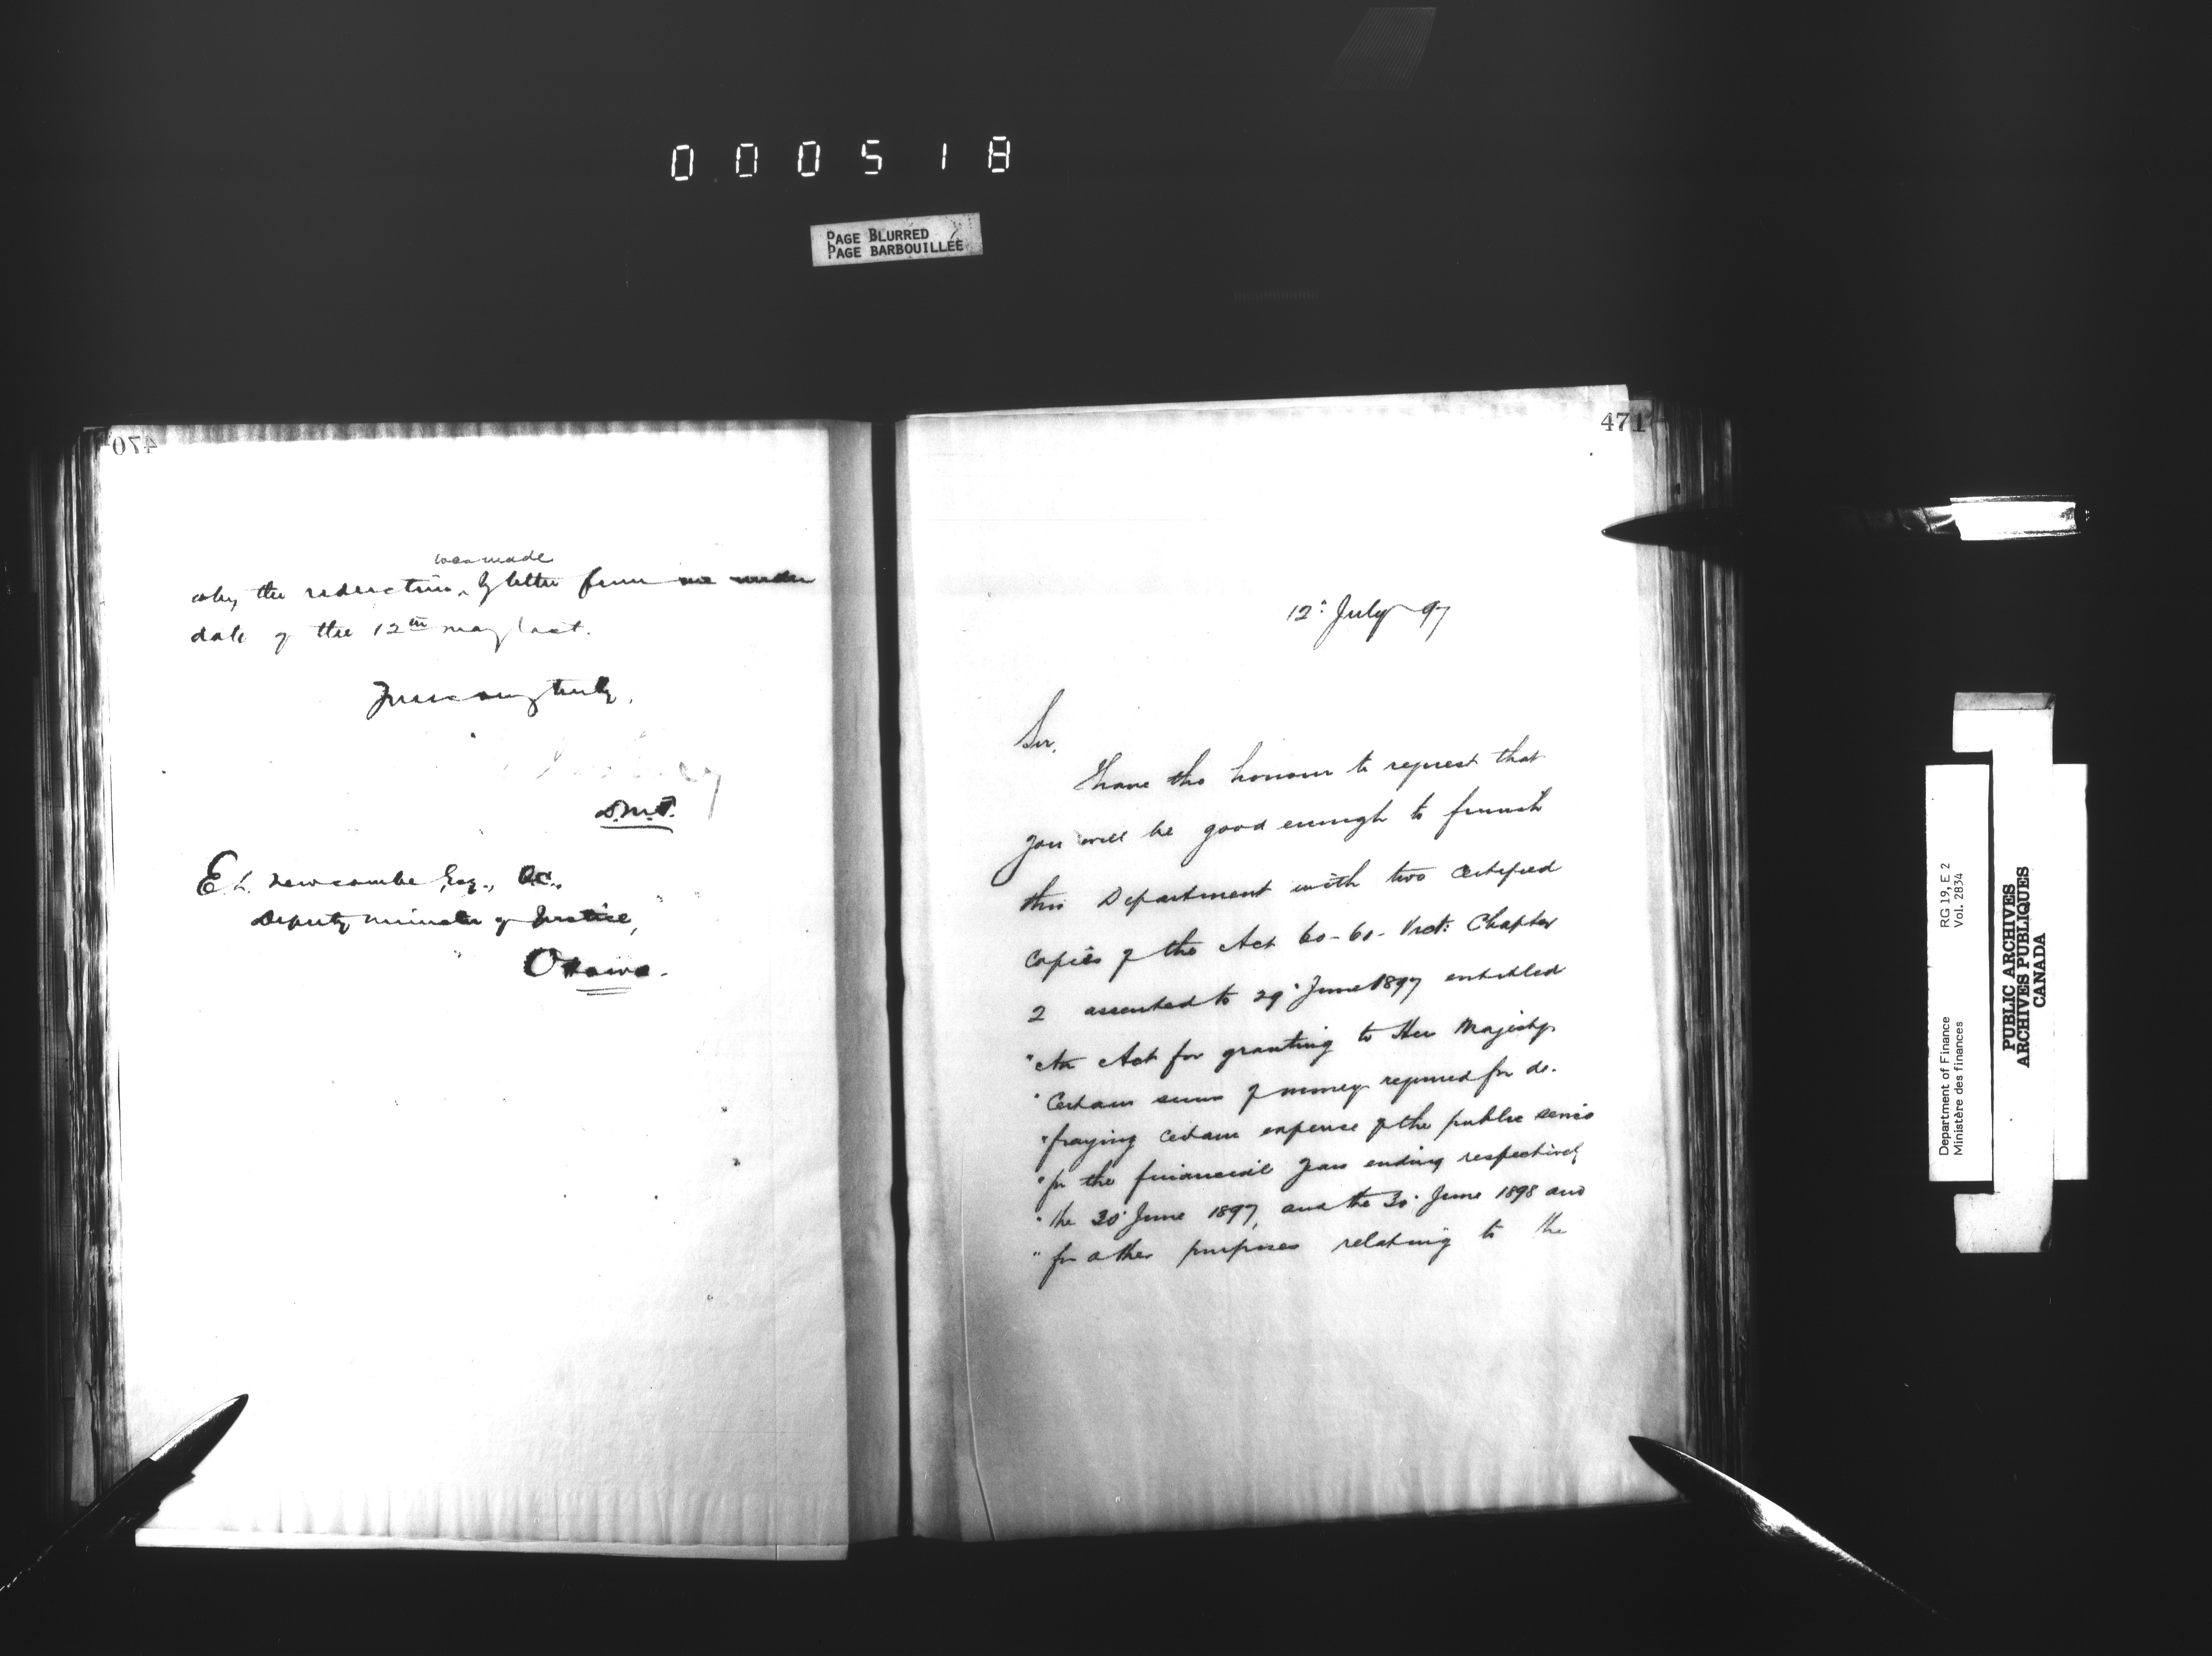 000518
PAGE BLURRED
PAGE BARBOUILLÉE
470
was made
why the reduction, by letter from me under
date of the 12th May last.
Yours very truly,
D.M.F.
E. L. Newcombe Esq., Q.C.,
Deputy Minister of Justice,
Ottawa.
471
12" July 97
Sir,
I have the honour to request that
you will be good enough to furnish
this Department with two certified
Copies of the Act 60-61- Vict: Chapter
2 assented to 29" June 1897 entitled
"An Act for granting to Her Majesty
"Certain sums of money required for de-
"fraying certain expense of the public service
"for the financial years ending respectively
"the 30" June 1897, and the 30" June 1898 and
"for other purposes relating to the
Department of Finance RG 19, E 2
Ministère des finances Vol. 2834
PUBLIC ARCHIVES
ARCHIVES PUBLIQUES
CANADA